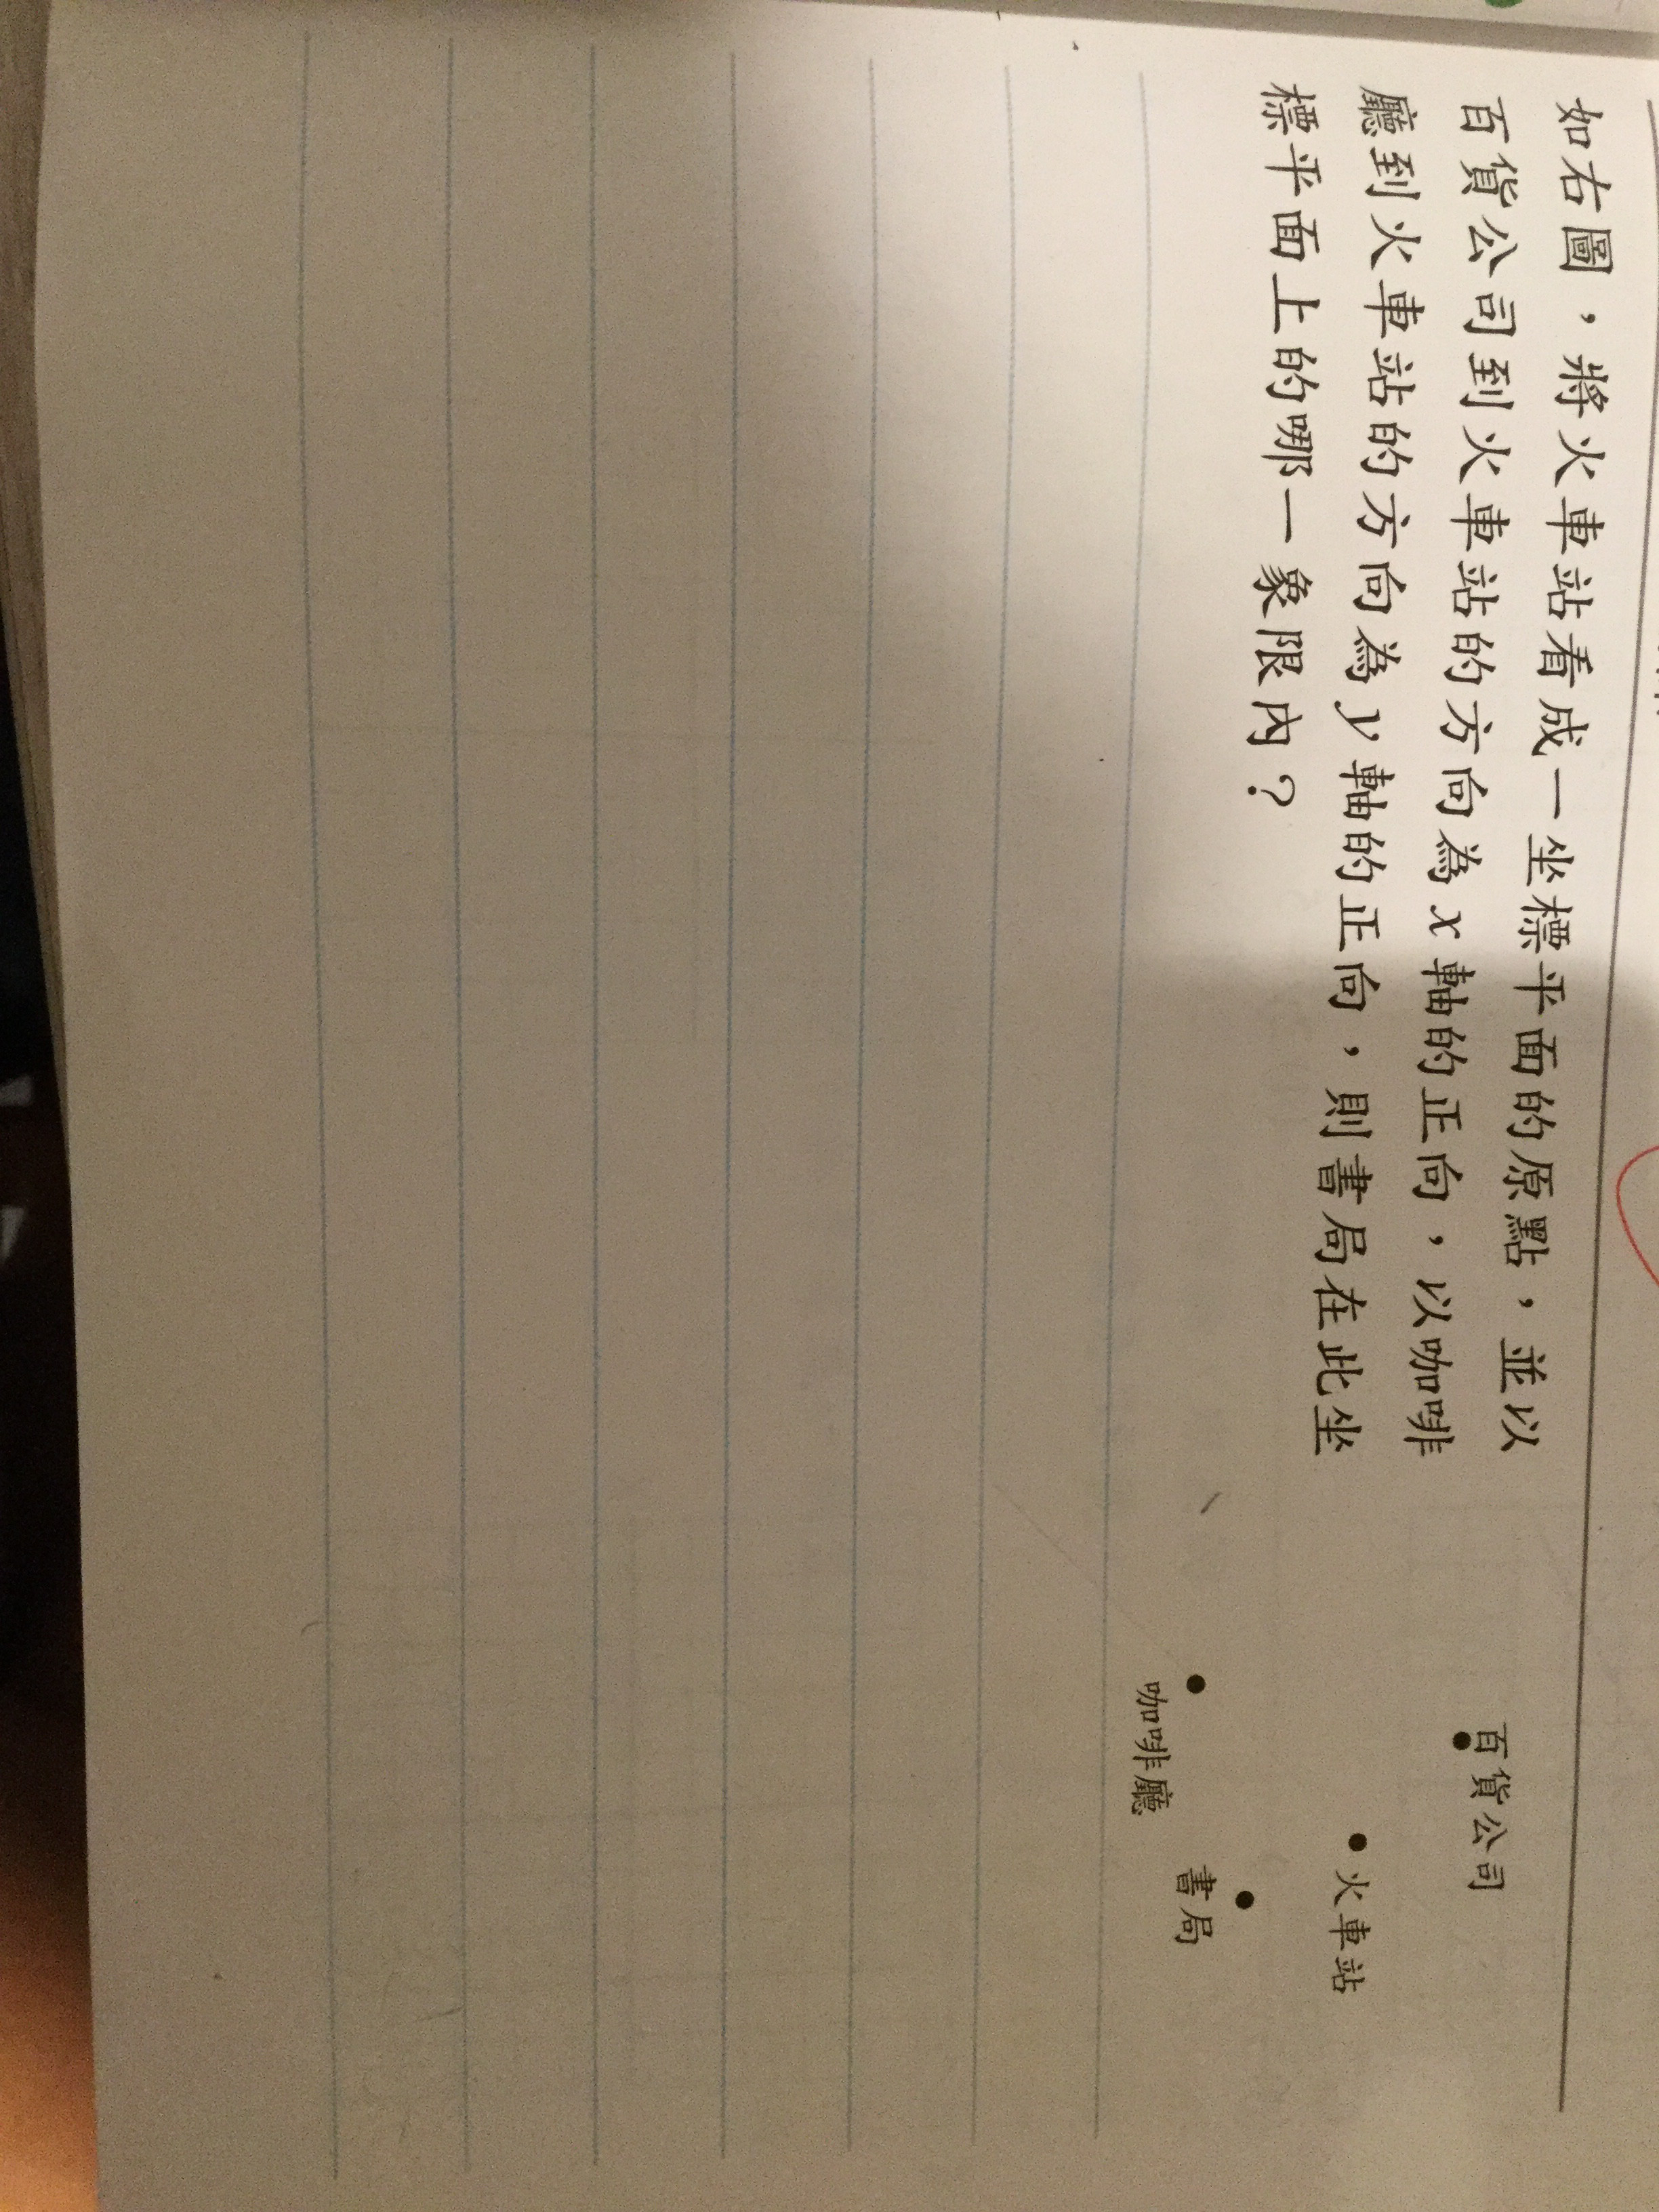 如右圖，將火車站看成一坐標平面的原點，並以
百貨公司到火車站的方向為x軸的正向，以咖啡
廳到火車站的方向為y軸的正向，則書局在此坐
標平面上的哪一象限內？
百貨公司
火車站
咖啡廳
書局